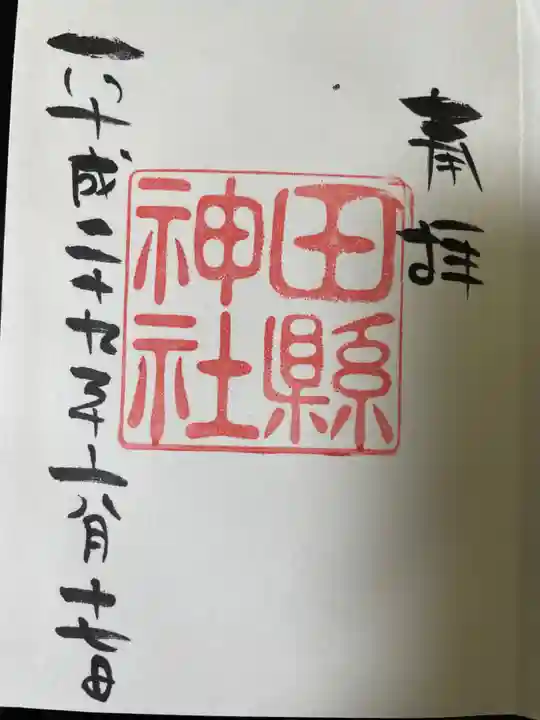 奉拝
田縣
神社
平成二十九年十月十日